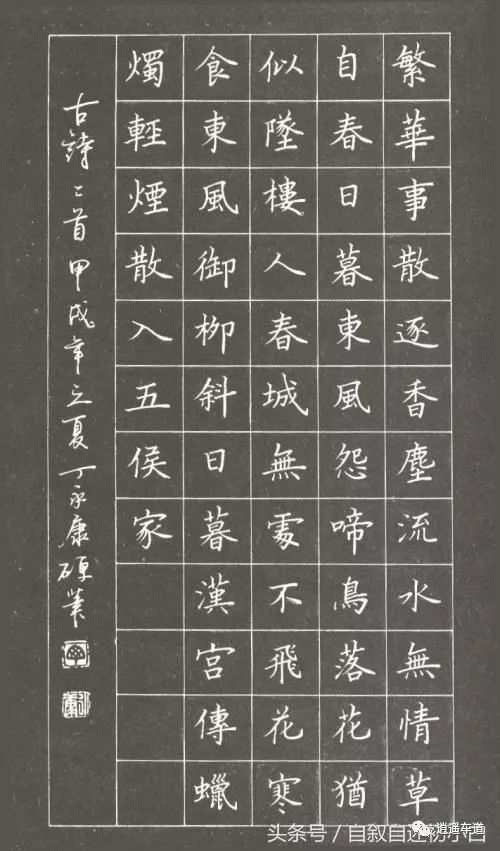 繁華事散逐香塵流水無情草
自春日暮東風怨啼鳥落花猶
似墜樓人春城無處不飛花寒
食東風御柳斜日暮漢宮傳蠟
燭輕煙散入五侯家
古詩二首甲戌年立夏丁永康硬筆
逍遥车道
头条号 / 自叙自述初小白